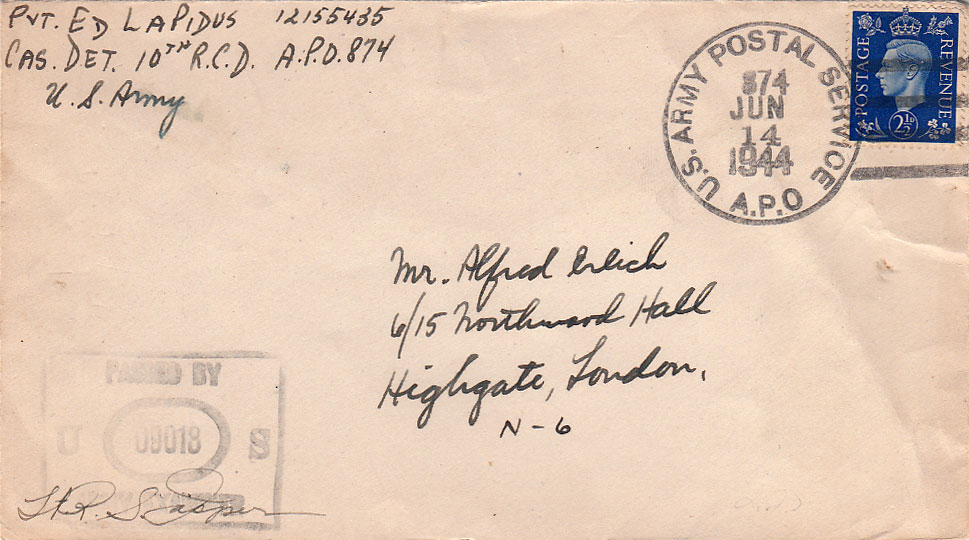 Pvt. Ed LaPidus 12155435
Cas. Det. 10TH R.C.D. A.P.O. 874
U.S. Army
U.S. ARMY POSTAL SERVICE
874
JUN
14
1944
A.P.O
POSTAGE
REVENUE
2½D
Mr. Alfred Erlich
6/15 Northwood Hall
Highgate, London,
N-6
PASSED BY
U 09018 S
Lt R. S.